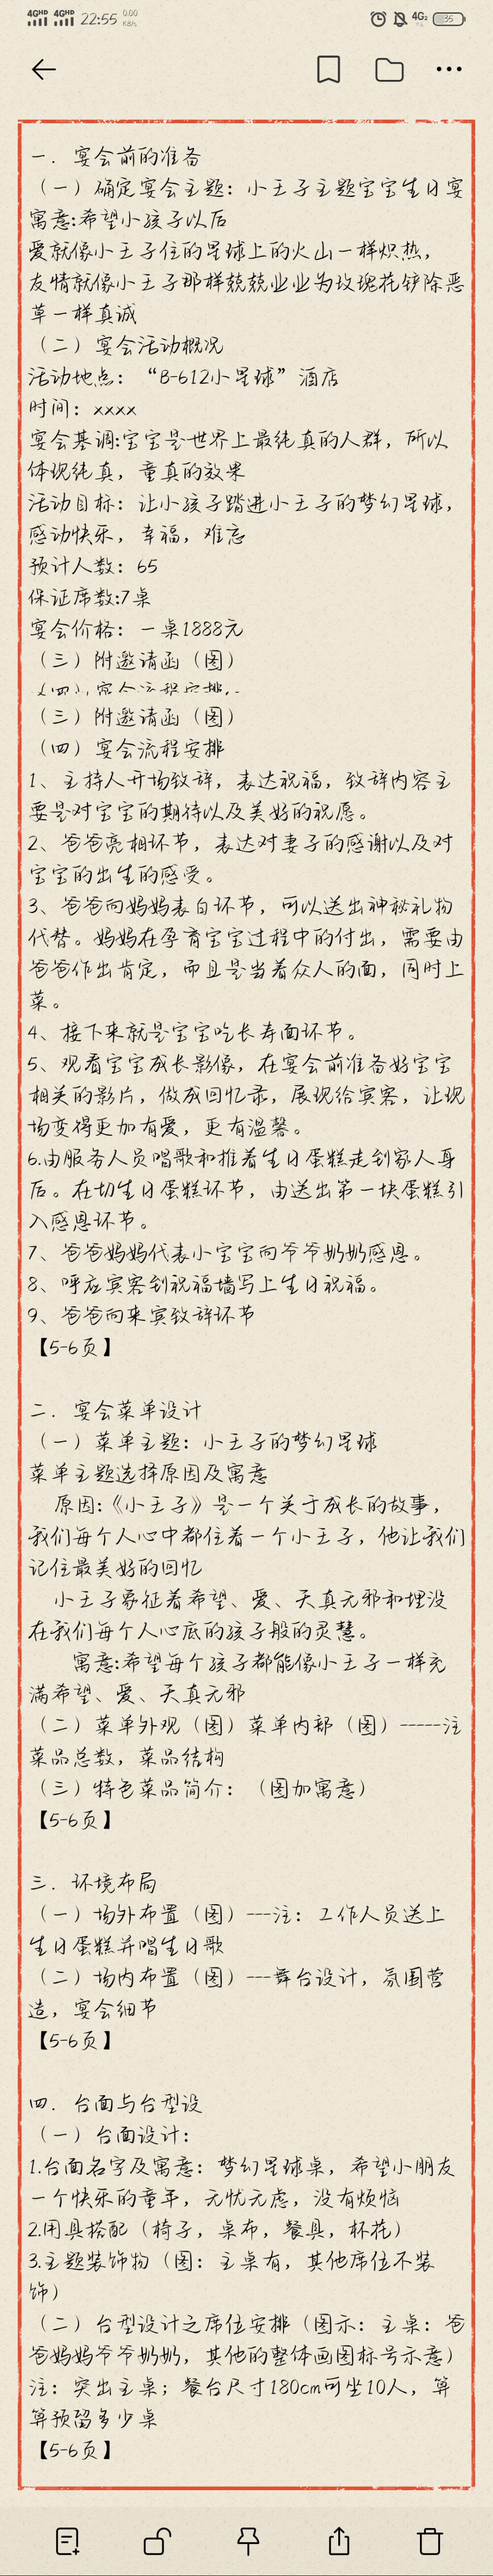 4GHD 4GHD 22:55 0.00 KB/s 4G2 35
一. 宴会前的准备
（一）确定宴会主题：小王子主题宝宝生日宴
寓意:希望小孩子以后
爱就像小王子住的星球上的火山一样炽热，
友情就像小王子那样兢兢业业为玫瑰花铲除恶
草一样真诚
（二）宴会活动概况
活动地点：“B-612小星球”酒店
时间：xxxx
宴会基调:宝宝是世界上最纯真的人群，所以
体现纯真，童真的效果
活动目标：让小孩子踏进小王子的梦幻星球，
感动快乐，幸福，难忘
预计人数：65
保证席数:7桌
宴会价格：一桌1888元
（三）附邀请函（图）
（三）附邀请函（图）
（四）宴会流程安排
1、主持人开场致辞，表达祝福，致辞内容主
要是对宝宝的期待以及美好的祝愿。
2、爸爸亮相环节，表达对妻子的感谢以及对
宝宝的出生的感受。
3、爸爸向妈妈表白环节，可以送出神秘礼物
代替。妈妈在孕育宝宝过程中的付出，需要由
爸爸作出肯定，而且是当着众人的面，同时上
菜。
4、接下来就是宝宝吃长寿面环节。
5、观看宝宝成长影像，在宴会前准备好宝宝
相关的影片，做成回忆录，展现给宾客，让现
场变得更加有爱，更有温馨。
6.由服务人员唱歌和推着生日蛋糕走到家人身
后。在切生日蛋糕环节，由送出第一块蛋糕引
入感恩环节。
7、爸爸妈妈代表小宝宝向爷爷奶奶感恩。
8、呼应宾客到祝福墙写上生日祝福。
9、爸爸向来宾致辞环节
【5-6页】
二. 宴会菜单设计
（一）菜单主题：小王子的梦幻星球
菜单主题选择原因及寓意
原因:《小王子》是一个关于成长的故事，
我们每个人心中都住着一个小王子，他让我们
记住最美好的回忆
小王子象征着希望、爱、天真无邪和埋没
在我们每个人心底的孩子般的灵慧。
寓意:希望每个孩子都能像小王子一样充
满希望、爱、天真无邪
（二）菜单外观（图）菜单内部（图）-----注
菜品总数，菜品结构
（三）特色菜品简介：（图加寓意）
【5-6页】
三. 环境布局
（一）场外布置（图）---注：工作人员送上
生日蛋糕并唱生日歌
（二）场内布置（图）---舞台设计，氛围营
造，宴会细节
【5-6页】
四. 台面与台型设
（一）台面设计：
1.台面名字及寓意：梦幻星球桌，希望小朋友
一个快乐的童年，无忧无虑，没有烦恼
2.用具搭配（椅子，桌布，餐具，杯花）
3.主题装饰物（图：主桌有，其他席位不装
饰）
（二）台型设计之席位安排（图示：主桌：爸
爸妈妈爷爷奶奶，其他的整体画图标号示意）
注：突出主桌；餐台尺寸180cm可坐10人，算
算预留多少桌
【5-6页】